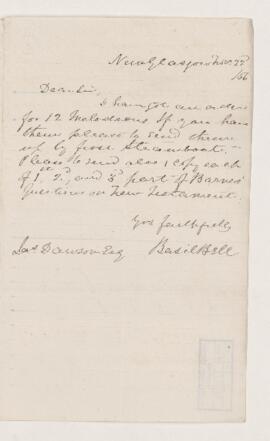 New Glasgow Nov 22d
/66
Dear Sir,
I have got an order
for 12 Melodeons If you have
them please to send them
up by first Steamboat. —
Please to send also 1 Copy each
of 1st 2d and 3d part of Barnes'
Questions on New Testament.
Yors faithfully
Jas Dawson Esq Basil Bell